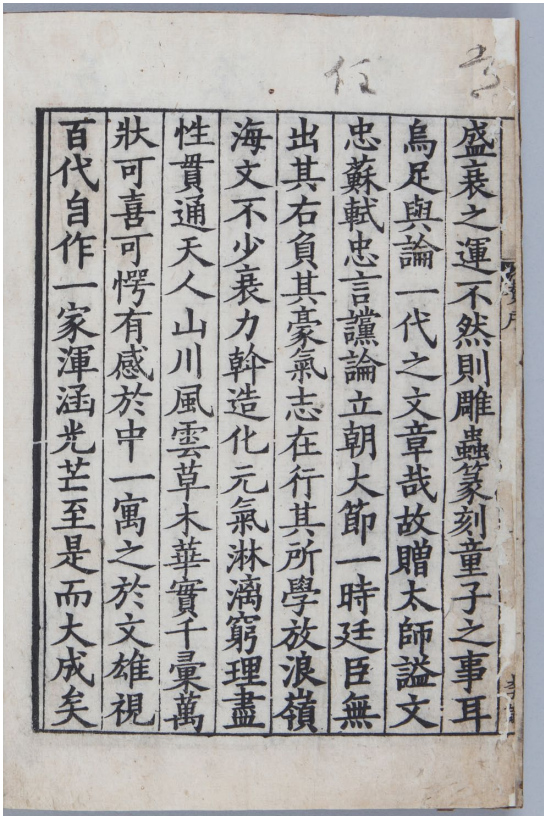 盛衰之運不然則雕蟲篆刻童子之事耳
烏足與論一代之文章哉故贈太師謚文
忠蘇軾忠言讜論立朝大節一時廷臣無
出其右負其豪氣志在行其所學放浪嶺
海文不少衰力斡造化元氣淋漓窮理盡
性貫通天人山川風雲草木華實千彙萬
狀可喜可愕有感於中一寓之於文雄視
百代自作一家渾涵光芒至是而大成矣
任